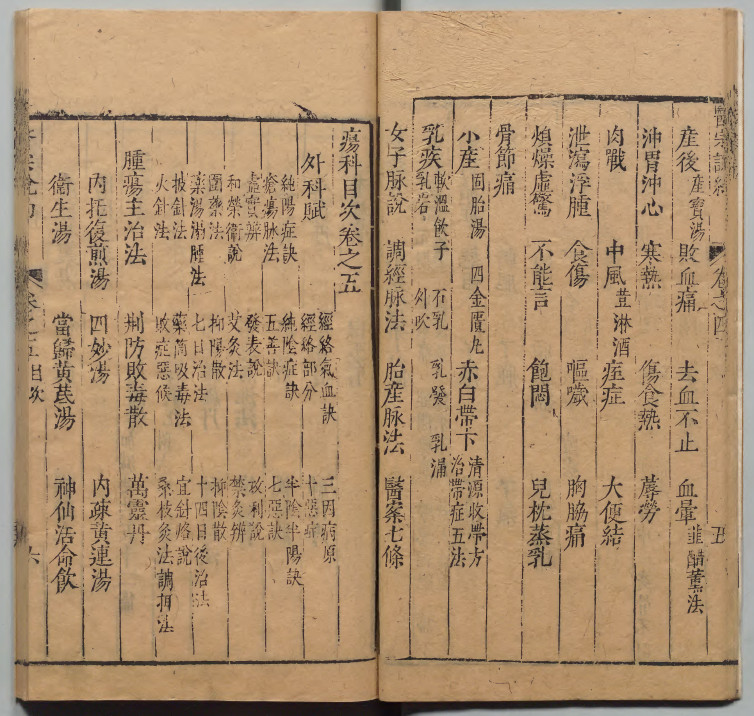 醫宗說約 卷之四 五
產後 產寶湯 敗血痛 去血不止 血暈 韭醋薰法
沖胃沖心 寒熱 傷食熱 蓐勞
肉戰 中風 荳淋酒 痓症 大便結
泄瀉浮腫 食傷 嘔噦 胸脇痛
煩燥虛驚 不能言 飽悶 兒枕蒸乳
骨節痛
小產 固胎湯 四金匱丸 赤白帶下 清源收帶方 治帶症五法
乳疾 軟溫飲子 石乳 乳發 乳漏 乳岩 外吹
女子脈說 調經脈法 胎產脈法 醫案七條
瘍科目次卷之五
外科賦 經絡氣血訣 三因病原
純陽症訣 經絡部分 十惡症
瘡瘍脈法 純陰症訣 半陰半陽訣
虛實辨 五善訣 七惡訣
和榮衛說 發表說 攻利說
圍藥法 艾灸法 禁灸辨
藥湯溻腫法 抑陽散 抑陰散
披針法 七日治法 十四日後治法
火針法 藥筒吸毒法 宜針烙說
敗症惡候 桑枝灸法 調攝法
腫瘍主治法 荊防敗毒散 萬靈丹
內托復煎湯 四妙湯 內疎黃連湯
衞生湯 當歸黃芪湯 神仙活命飲
卷之五目次 六